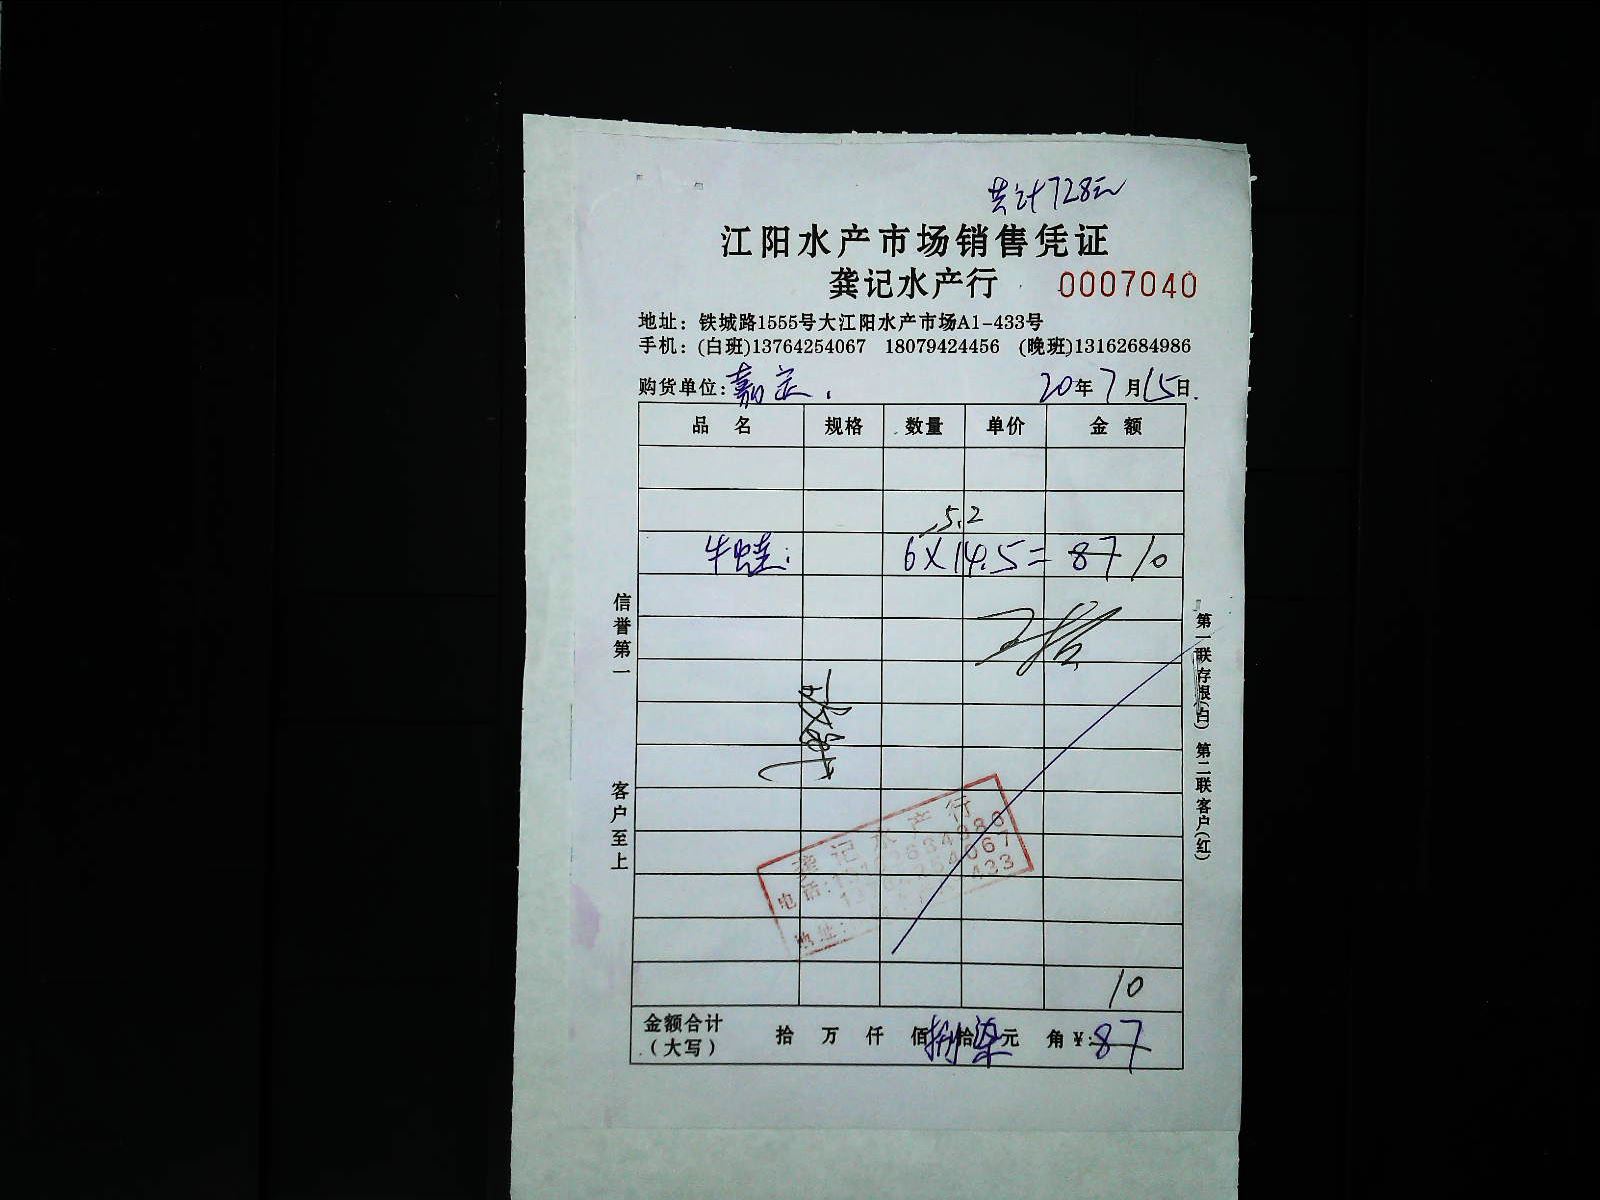 共计728元
江阳水产市场销售凭证
龚记水产行 0007040
地址：铁城路1555号大江阳水产市场A1-433号
手机：(白班)13764254067 18079424456 (晚班)13162684986
购货单位：嘉定. 20年7月15日.
品 名 规格 数量 单价 金 额
5.2
牛蛙: 6×14.5=87 10
信誉第一 客户至上
第一联存根(白) 第二联客户(红)
龚记水产行
电话:13162684986
13764254067
地址: 433
10
金额合计(大写) 拾 万 仟 佰捌拾柒元 角 ¥:87